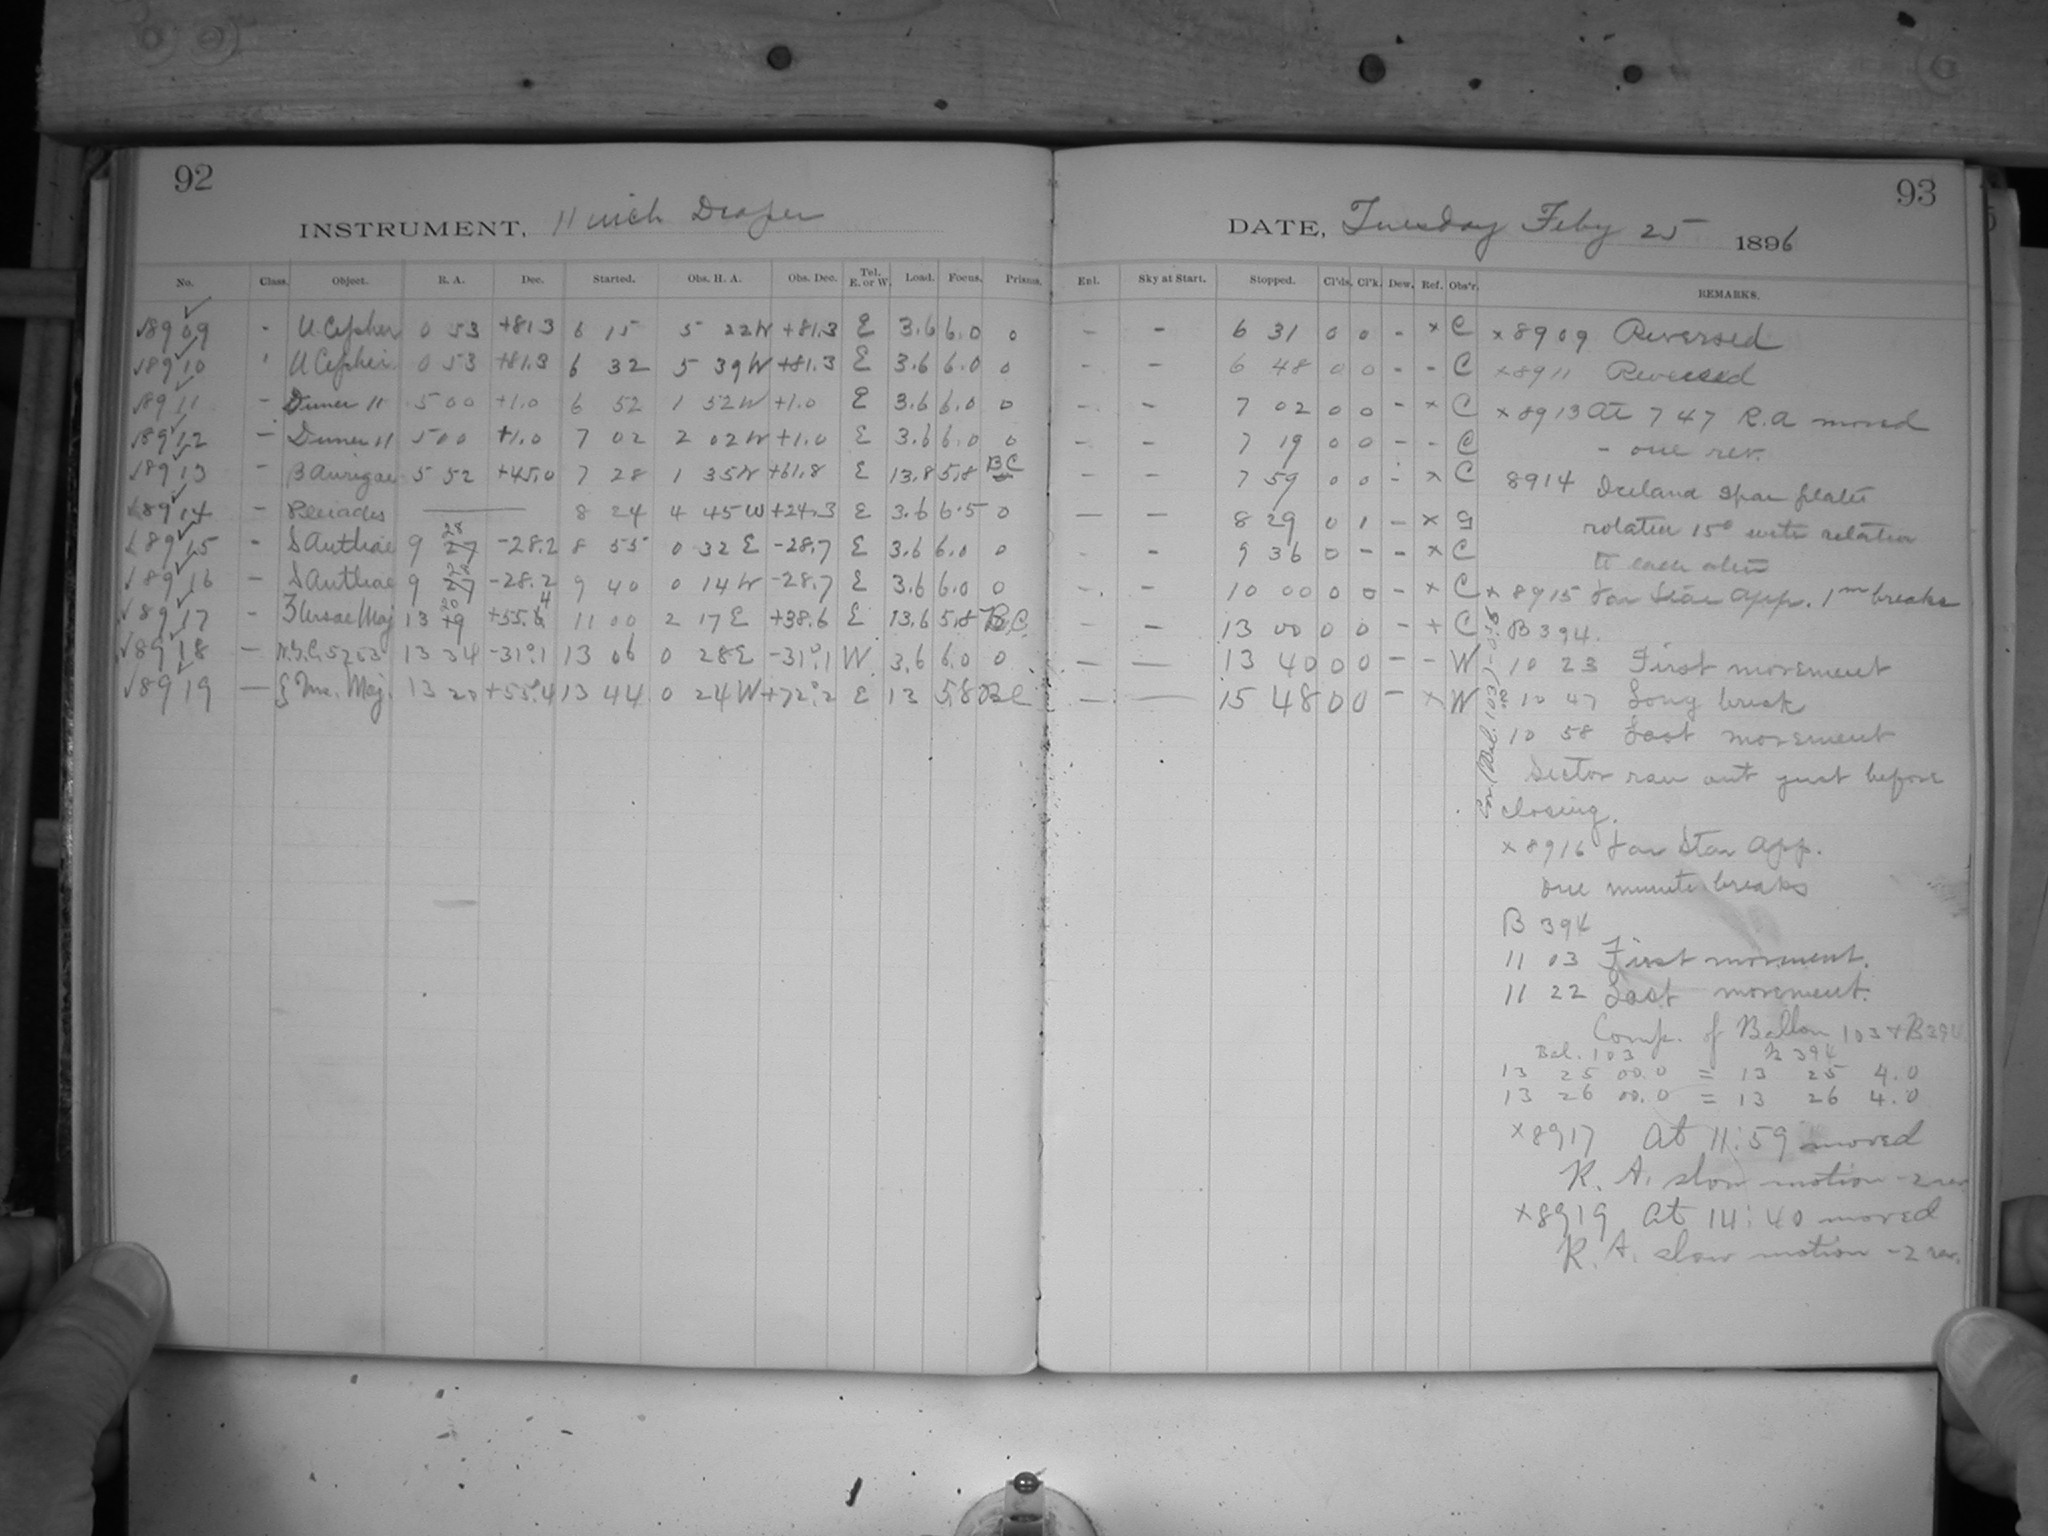 92
INSTRUMENT, 11 inch Draper
No. Class. Object. R. A. Dec. Started. Obs. H. A. Obs. Dec. Tel. E. or W. Load. Focus. Prisms.
8909 - U Cephei 0 53 +81.3 6 15 5 22 W +81.3 E 3.6 6.0 0
8910 - U Cephei 0 53 +81.3 6 32 5 39 W +81.3 E 3.6 6.0 0
8911 - Duner 11 5 00 +1.0 6 52 1 52 W +1.0 E 3.6 6.0 0
8912 - Duner 11 5 00 +1.0 7 02 2 02 W +1.0 E 3.6 6.0 0
8913 - B Aurigae 5 52 +45.0 7 28 1 35 W +61.8 E 13.8 5.8 BC
8914 - Pleiades — 8 24 4 45 W +24.3 E 3.6 6.5 0
8915 - S Antliae 9 27 28 -28.2 8 55 0 32 E -28.7 E 3.6 6.0 0
8916 - S Antliae 9 27 28 -28.2 9 40 0 14 W -28.7 E 3.6 6.0 0
8917 - 3 Ursae Maj 13 19 20 +55.4 11 00 2 17 E +38.6 E 13.6 5.8 B.C.
8918 - N.G.C. 5253 13 34 -31°.1 13 06 0 28 E -31°.1 W 3.6 6.0 0
8919 — ξ Urs. Maj. 13 20 +55°.4 13 44 0 24 W +72°.2 E 13 5.8 BC
93
DATE, Tuesday Feby 25 1896
Enl. Sky at Start. Stopped. Cl'ds. Cl'k. Dew. Ref. Obs'r. REMARKS.
- - 6 31 0 0 - x C
- - 6 48 0 0 - - C
- - 7 02 0 0 - x C
- - 7 19 0 0 - - C
- - 7 59 0 0 - x C
— — 8 29 0 1 - x G
- - 9 36 0 - - x C
- - 10 00 0 0 - x C
- - 13 00 0 0 - + C
— — 13 40 0 0 - - W
— — 15 48 0 0 - x W
x 8909 Reversed
x 8911 Reversed
x 8913 At 7 47 R.A moved
- one rev.
8914 Iceland Spar plates
rotated 15° with relation
to each other
x 8915 for Star App. 1m breaks
B 394.
10 23 First movement
10 47 Long break
10 58 Last movement
Sector ran out just before
closing.
x 8916 for Star App.
one minute breaks
B 394
11 03 First movement.
11 22 Last movement.
Comp. of Ballou 103 & B 394
Bal. 103 B 394
13 25 00.0 = 13 25 4.0
13 26 00.0 = 13 26 4.0
x 8917 At 11:59 moved
R. A. slow motion -2 rev
x 8919 At 14:40 moved
R. A. slow motion -2 rev.